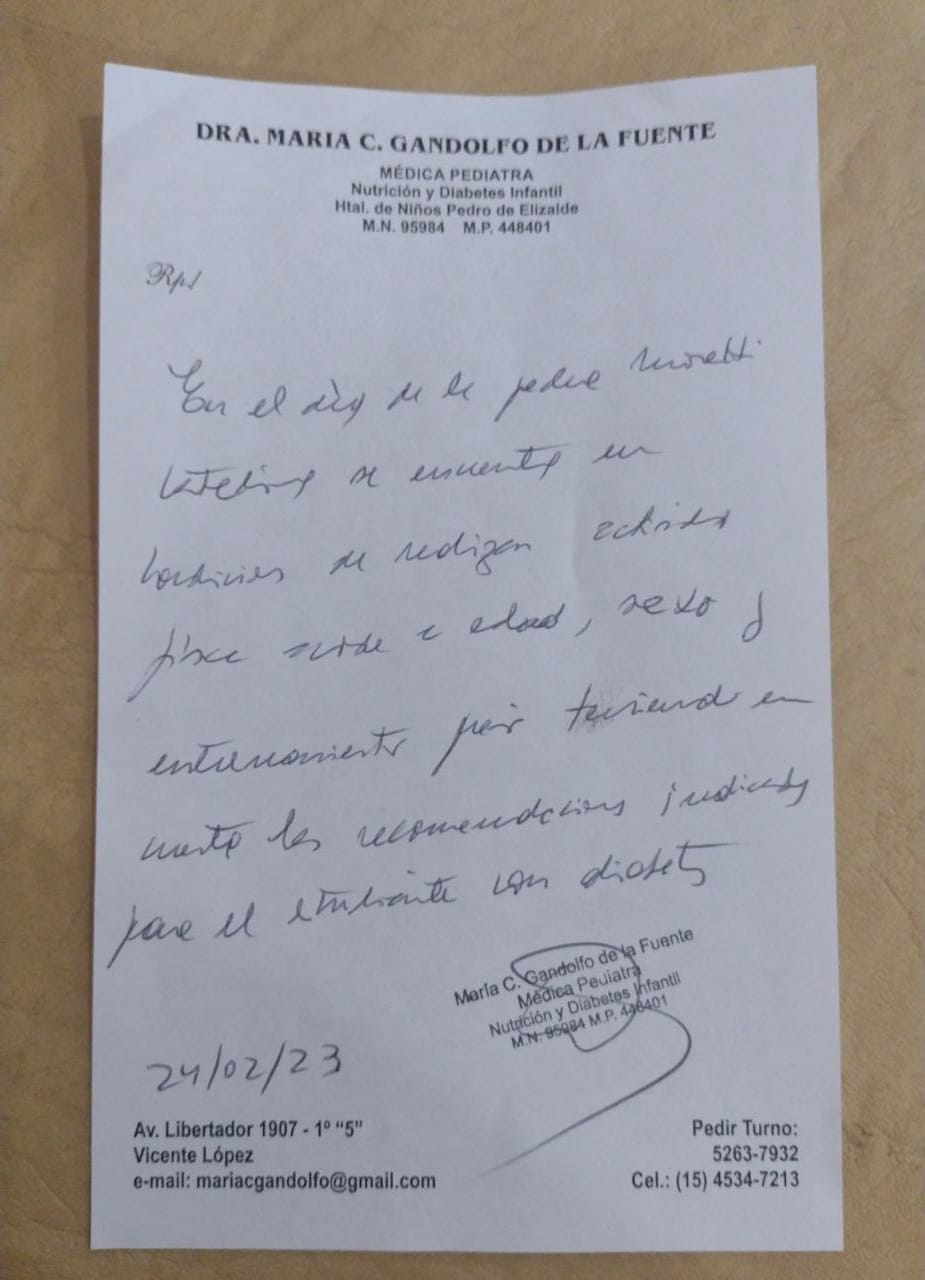 DRA. MARIA C. GANDOLFO DE LA FUENTE
MÉDICA PEDIATRA
Nutrición y Diabetes Infantil
Htal. de Niños Pedro de Elizalde
M.N. 95984 M.P. 448401
Rp/
En el día de la fecha Moretti
se encuentra en
condiciones de realizar actividad
física acorde a edad, sexo y
entrenamiento pero teniendo en
cuenta las recomendaciones indicadas
para el estudiante con diabetes
María C. Gandolfo de la Fuente
Médica Pediatra
Nutrición y Diabetes Infantil
M.N. 95984 M.P. 448401
24/02/23
Av. Libertador 1907 - 1º “5”
Vicente López
e-mail: mariacgandolfo@gmail.com
Pedir Turno:
5263-7932
Cel.: (15) 4534-7213